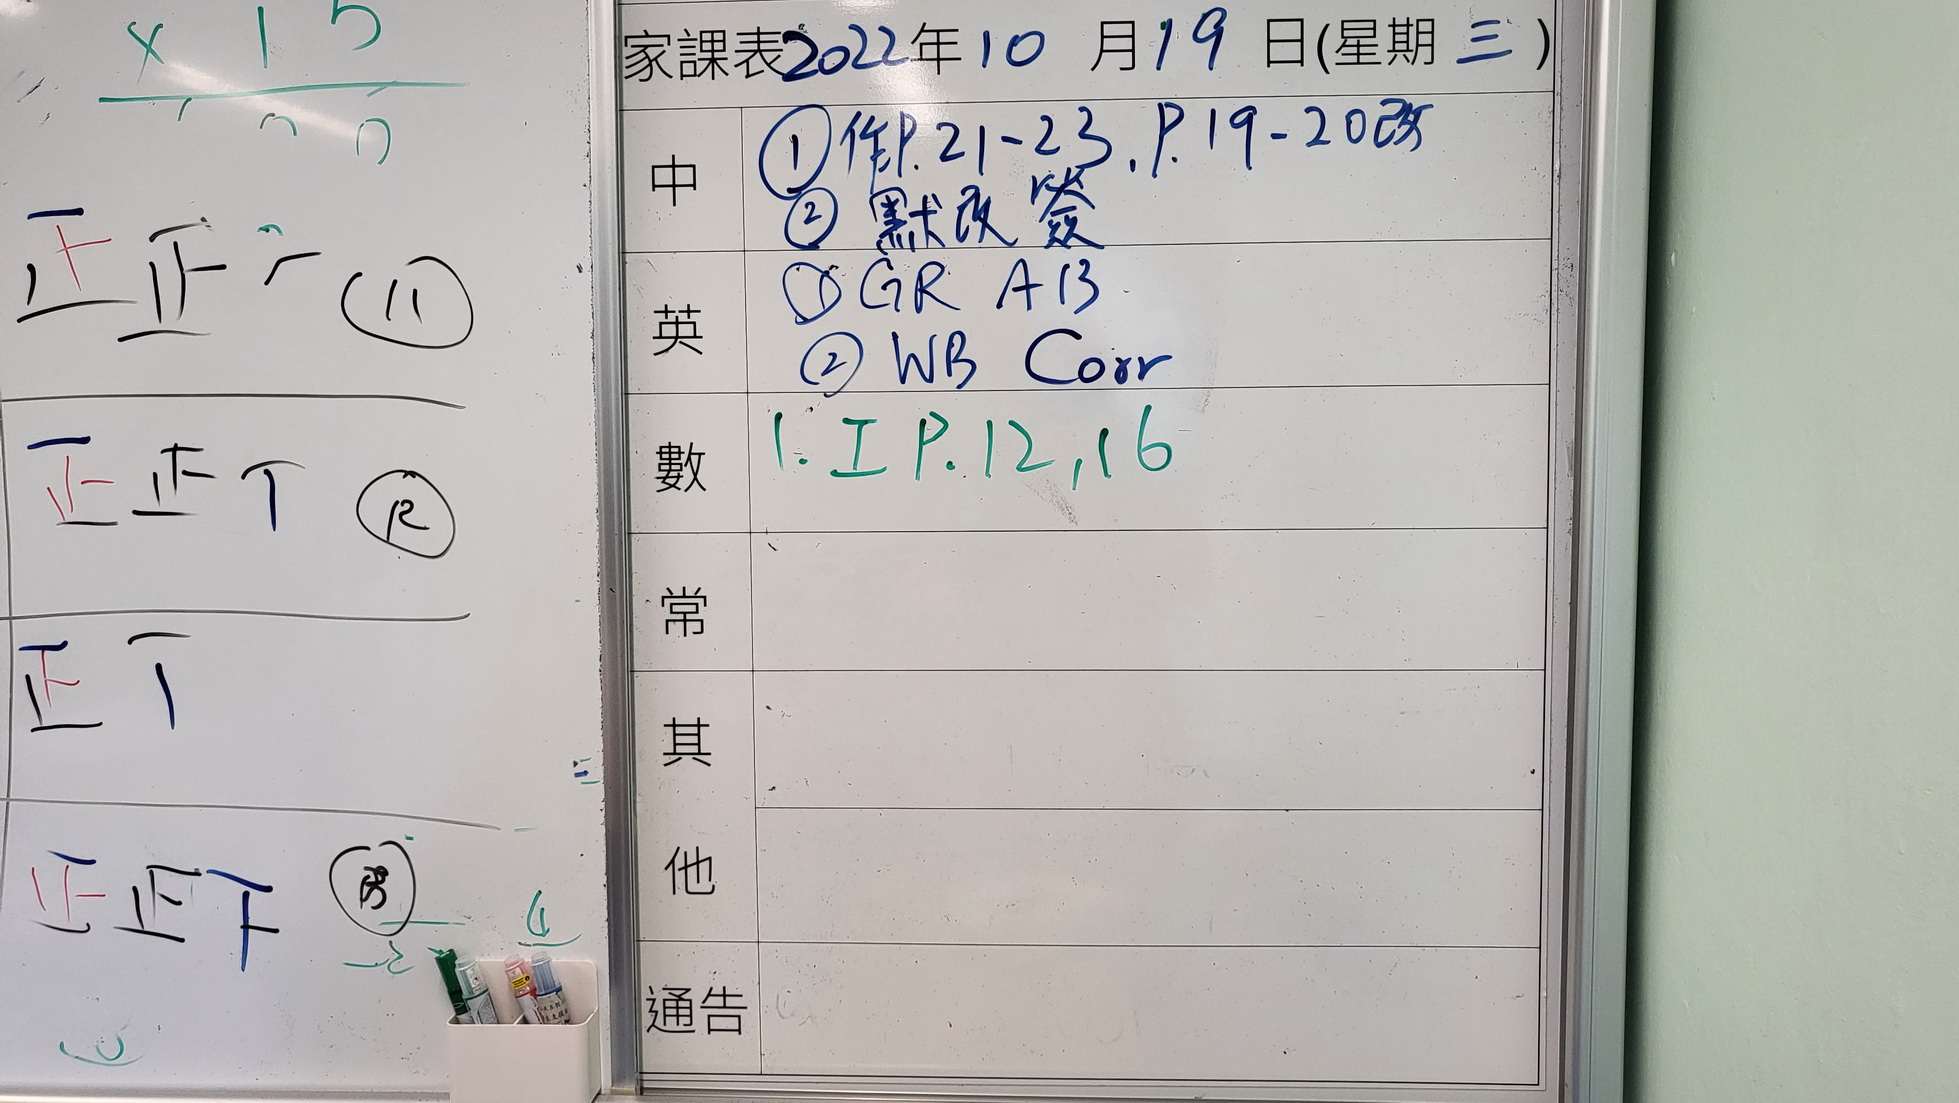 x 15
正正一 11
正正丅 12
正丅
正正下 13
家課表2022年10月19日(星期三)
中
①作P.21-23.P.19-20改
②默改簽
英
①GR AB
②WB Corr
數
1. I P.12,16
常
其
他
通告